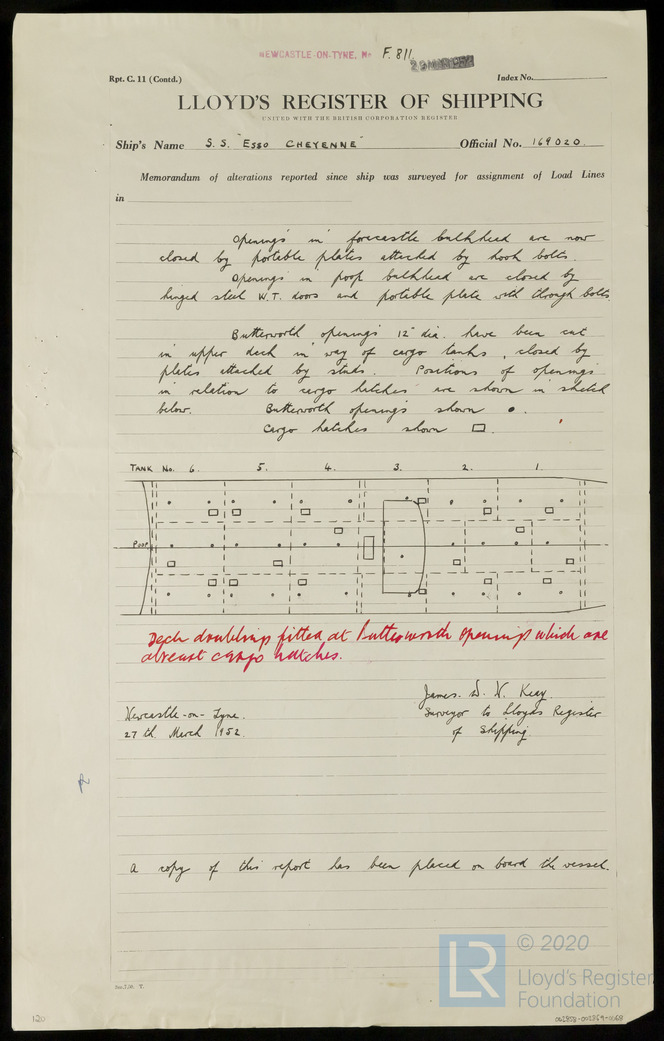 NEWCASTLE-ON-TYNE. No F. 811.
Rpt. C. 11 (Contd.)
Index No.
LLOYD'S REGISTER OF SHIPPING
UNITED WITH THE BRITISH CORPORATION REGISTER
Ship's Name S.S. "ESSO CHEYENNE" Official No. 169020.
Memorandum of alterations reported since ship was surveyed for assignment of Load Lines
in
Openings in forecastle bulkhead are now
closed by portable plates attached by hook bolts.
Openings in poop bulkhead are closed by
hinged steel W.T. doors and portable plate with through bolts
Butterworth openings 12" dia. have been cut
in upper deck in way of cargo tanks, closed by
plates attached by studs. Positions of openings
in relation to cargo hatches are shown in sketch
below. Butterworth openings shown •.
Cargo hatches shown ▭.
TANK No. 6. 5. 4. 3. 2. 1.
POOP
Deck doublings fitted at Butterworth openings which are
abreast cargo hatches.
James. D. W. Keay.
Newcastle-on-Tyne. Surveyor to Lloyds Register
27th March 1952. of Shipping.
A copy of this report has been placed on board the vessel.
© 2020
LR Lloyd's Register
Foundation
120